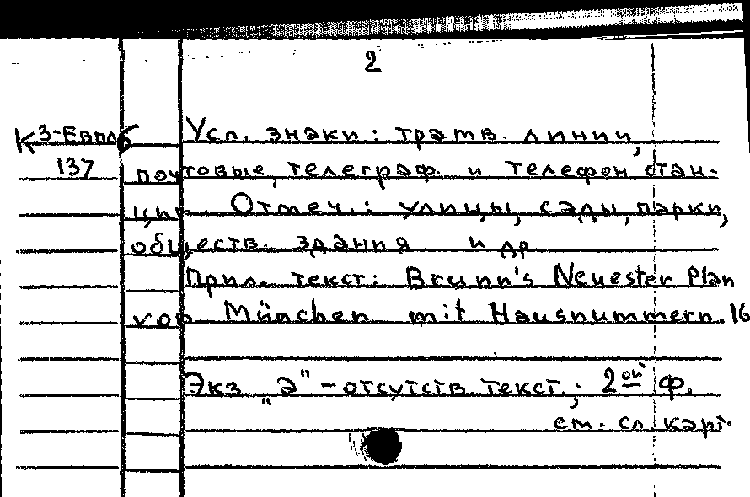 2
К3-Евпл 6 Усл. знаки: трамв. линии,
137 почтовые, телеграф. и телефон. стан-
ции. Отмеч.: улицы, сады, парки,
обществ. здания и др
Прил. текст: Brunn's Neuester Plan
von München mit Hausnummern. 16
Экз „а" - отсутств. текст.; 2ой ф.
см. сл. карт.